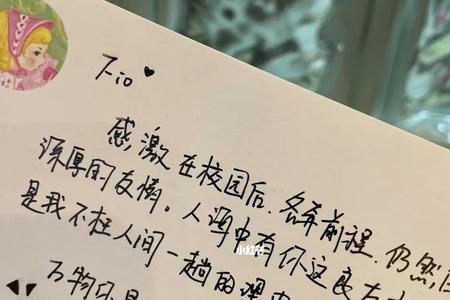 Fio ♥
感激在校园后.各奔前程,仍然
深厚的友情。人海中有你这良友
是我不枉人间一趟的理由
小红书
万物